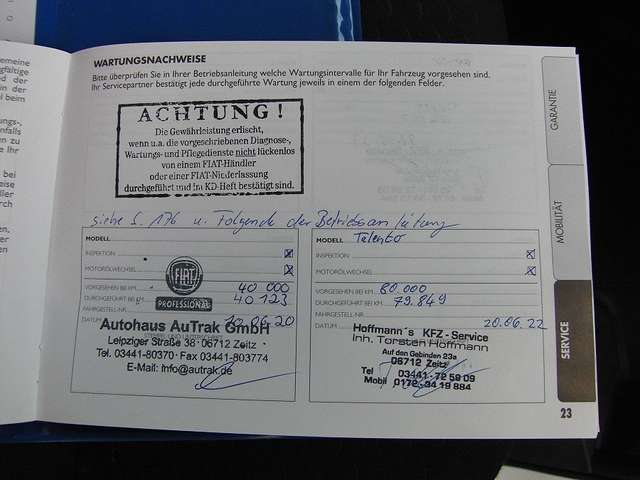 WARTUNGSNACHWEISE
Bitte überprüfen Sie in Ihrer Betriebsanleitung welche Wartungsintervalle für Ihr Fahrzeug vorgesehen sind.
Ihr Servicepartner bestätigt jede durchgeführte Wartung jeweils in einem der folgenden Felder.
ACHTUNG!
Die Gewährleistung erlischt,
wenn u.a. die vorgeschriebenen Diagnose-,
Wartungs- und Pflegedienste nicht lückenlos
von einem FIAT-Händler
oder einer FIAT-Niederlassung
durchgeführt und im KD-Heft bestätigt sind.
siehe S. 176 u. Folgende der Betriebsanleitung
MODELL
INSPEKTION
MOTORÖLWECHSEL
VORGESEHEN BEI KM 40 000
DURCHGEFÜHRT BEI KM 40 123
FAHRGESTELL-NR.
DATUM 10.06.20
FIAT
PROFESSIONAL
Autohaus AuTrak GmbH
Leipziger Straße 38 · 06712 Zeitz
Tel. 03441-80370 · Fax 03441-803774
E-Mail: info@autrak.de
MODELL Talento
INSPEKTION
MOTORÖLWECHSEL
VORGESEHEN BEI KM 80 000
DURCHGEFÜHRT BEI KM 79.849
FAHRGESTELL-NR.
DATUM 20.06.22
Hoffmann´s KFZ-Service
Inh. Torsten Hoffmann
Auf den Gebinden 23a
06712 Zeitz
Tel 03441-72 59 09
Mobil 0172-34 19 884
GARANTIE
MOBILITÄT
SERVICE
23